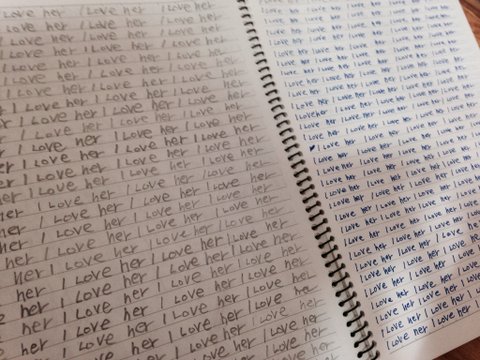 Love her I Love her I Love her
Love her I Love her I Love her
Love her I Love her I Love her
Love her I Love her I Love her
Love her I Love her I Love her
I Love her I Love her I Love her
I Love her I Love her I Love her
I Love her I Love her I Love her
her I Love her I Love her I Love her
her I Love her I Love her I Love her
her I Love her I Love her I Love her
her I Love her I Love her I Love her
her I Love her I Love her I Love her
her I Love her I Love her I Love her
her I Love her I Love her I Love her
her I Love her I Love her I Love her
her I Love her I Love her I Love her
her I Love her I Love her I Love her
I Love her I Love her I Love her I Love her
I Love her I Love her I Love her I Love her
I Love her I Love her I Love her I Love her
I Love her I Love her I Love her I Love her
I Love her I Love her I Love her I Love her
I Love her I Love her I Love her I Love her
I Love her I Love her I Love her I Love her
I Love her I Love her I Love her I Love her
I Love her I Love her I Love her I Love her
I Love her I Love her I Love her
I Love her I Love her I Love her
I Love her I Love her I Love her
I Love her I Love her I Love her
I Love her I Love her I Love her
I Love her I Love her I Love her
I Love her I Love her I Love her
I Love her I Love her I Love her
I Love her I Love her
I Love her I Love her